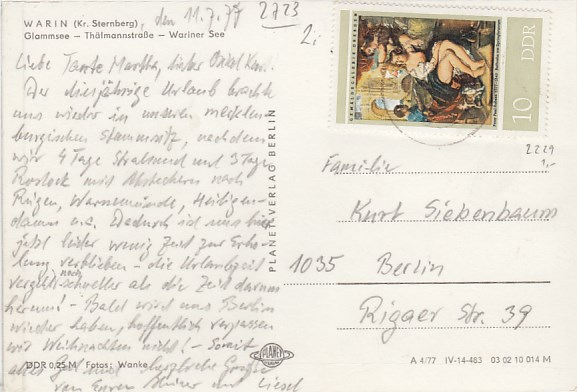 WARIN (Kr. Sternberg)
Glammsee – Thälmannstraße – Wariner See
, den 11.7.77
2723
2,-
Liebe Tante Martha, lieber Onkel Kurt.
Der diesjährige Urlaub brachte
uns wieder in unseren mecklen-
burgischen Stammsitz, nachdem
wir 4 Tage Stralsund und 3 Tage
Rostock mit Abstechern nach
Rügen, Warnemünde, Heiligen-
damm u.a. Dadurch ist uns hier
jetzt leider wenig Zeit zur Erho-
lung verblieben – die Urlaubszeit
vergeht noch schneller als die Zeit darum
herum! – Bald wird uns Berlin
wieder haben, hoffentlich verpassen
wir Weihnachten nicht! – Somit
alles Gute und herzliche Grüße
von Euren und Liesel
PLANET-VERLAG BERLIN
GEMÄLDEGALERIE DRESDEN
10 DDR
2229
1,-
Familie
Kurt Siebenbaum
1035 Berlin
Rigaer Str. 39
DDR 0,25 M Fotos: Wanke
PLANET
A 4/77 IV-14-483 03 02 10 014 M